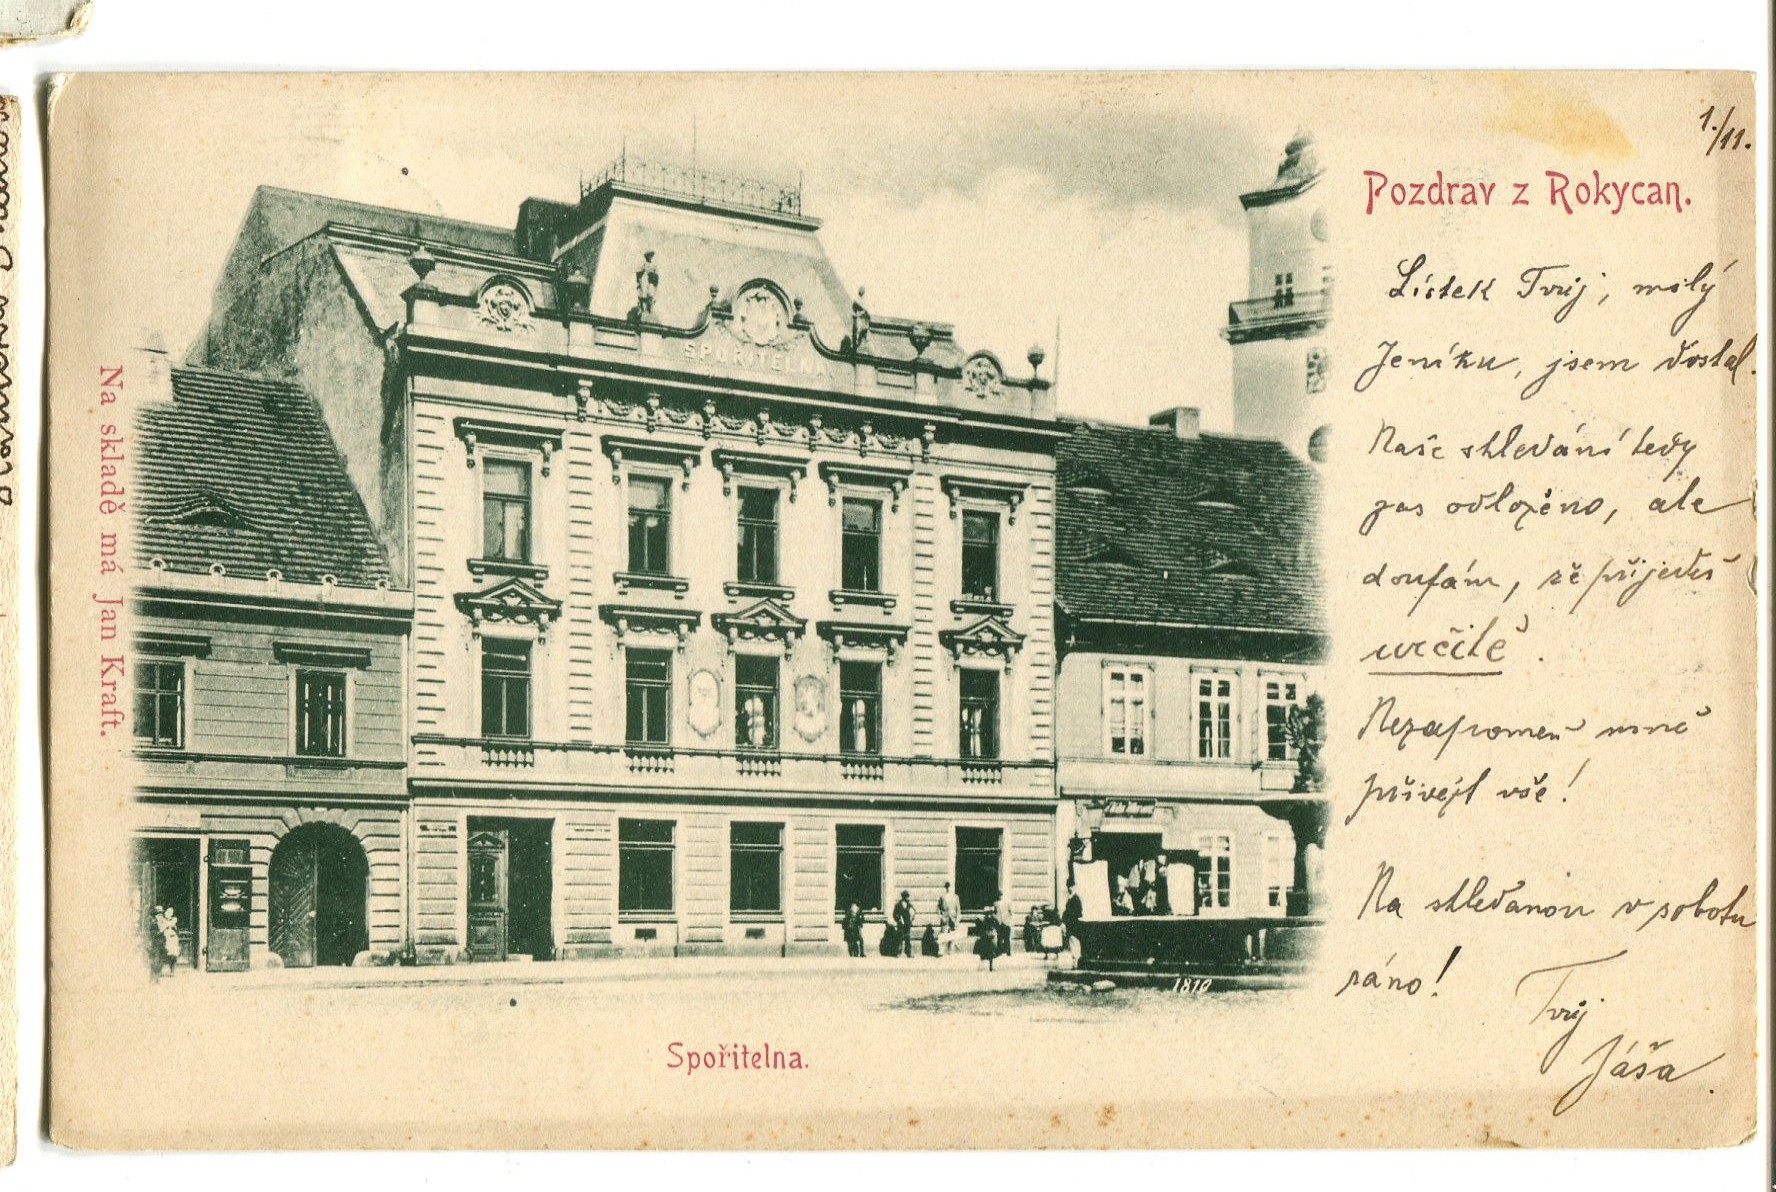 1./11.
Pozdrav z Rokycan.
Lístek Tvůj, milý
Jeníku, jsem dostal.
Naše shledání tedy
zas odloženo, ale
doufám, že přijedeš
určitě.
Nezapomeň mně
přivézt vše!
Na shledanou v sobotu
ráno!
Tvůj
Jáša.
SPOŘITELNA
Na skladě má Jan Kraft.
1819
Spořitelna.